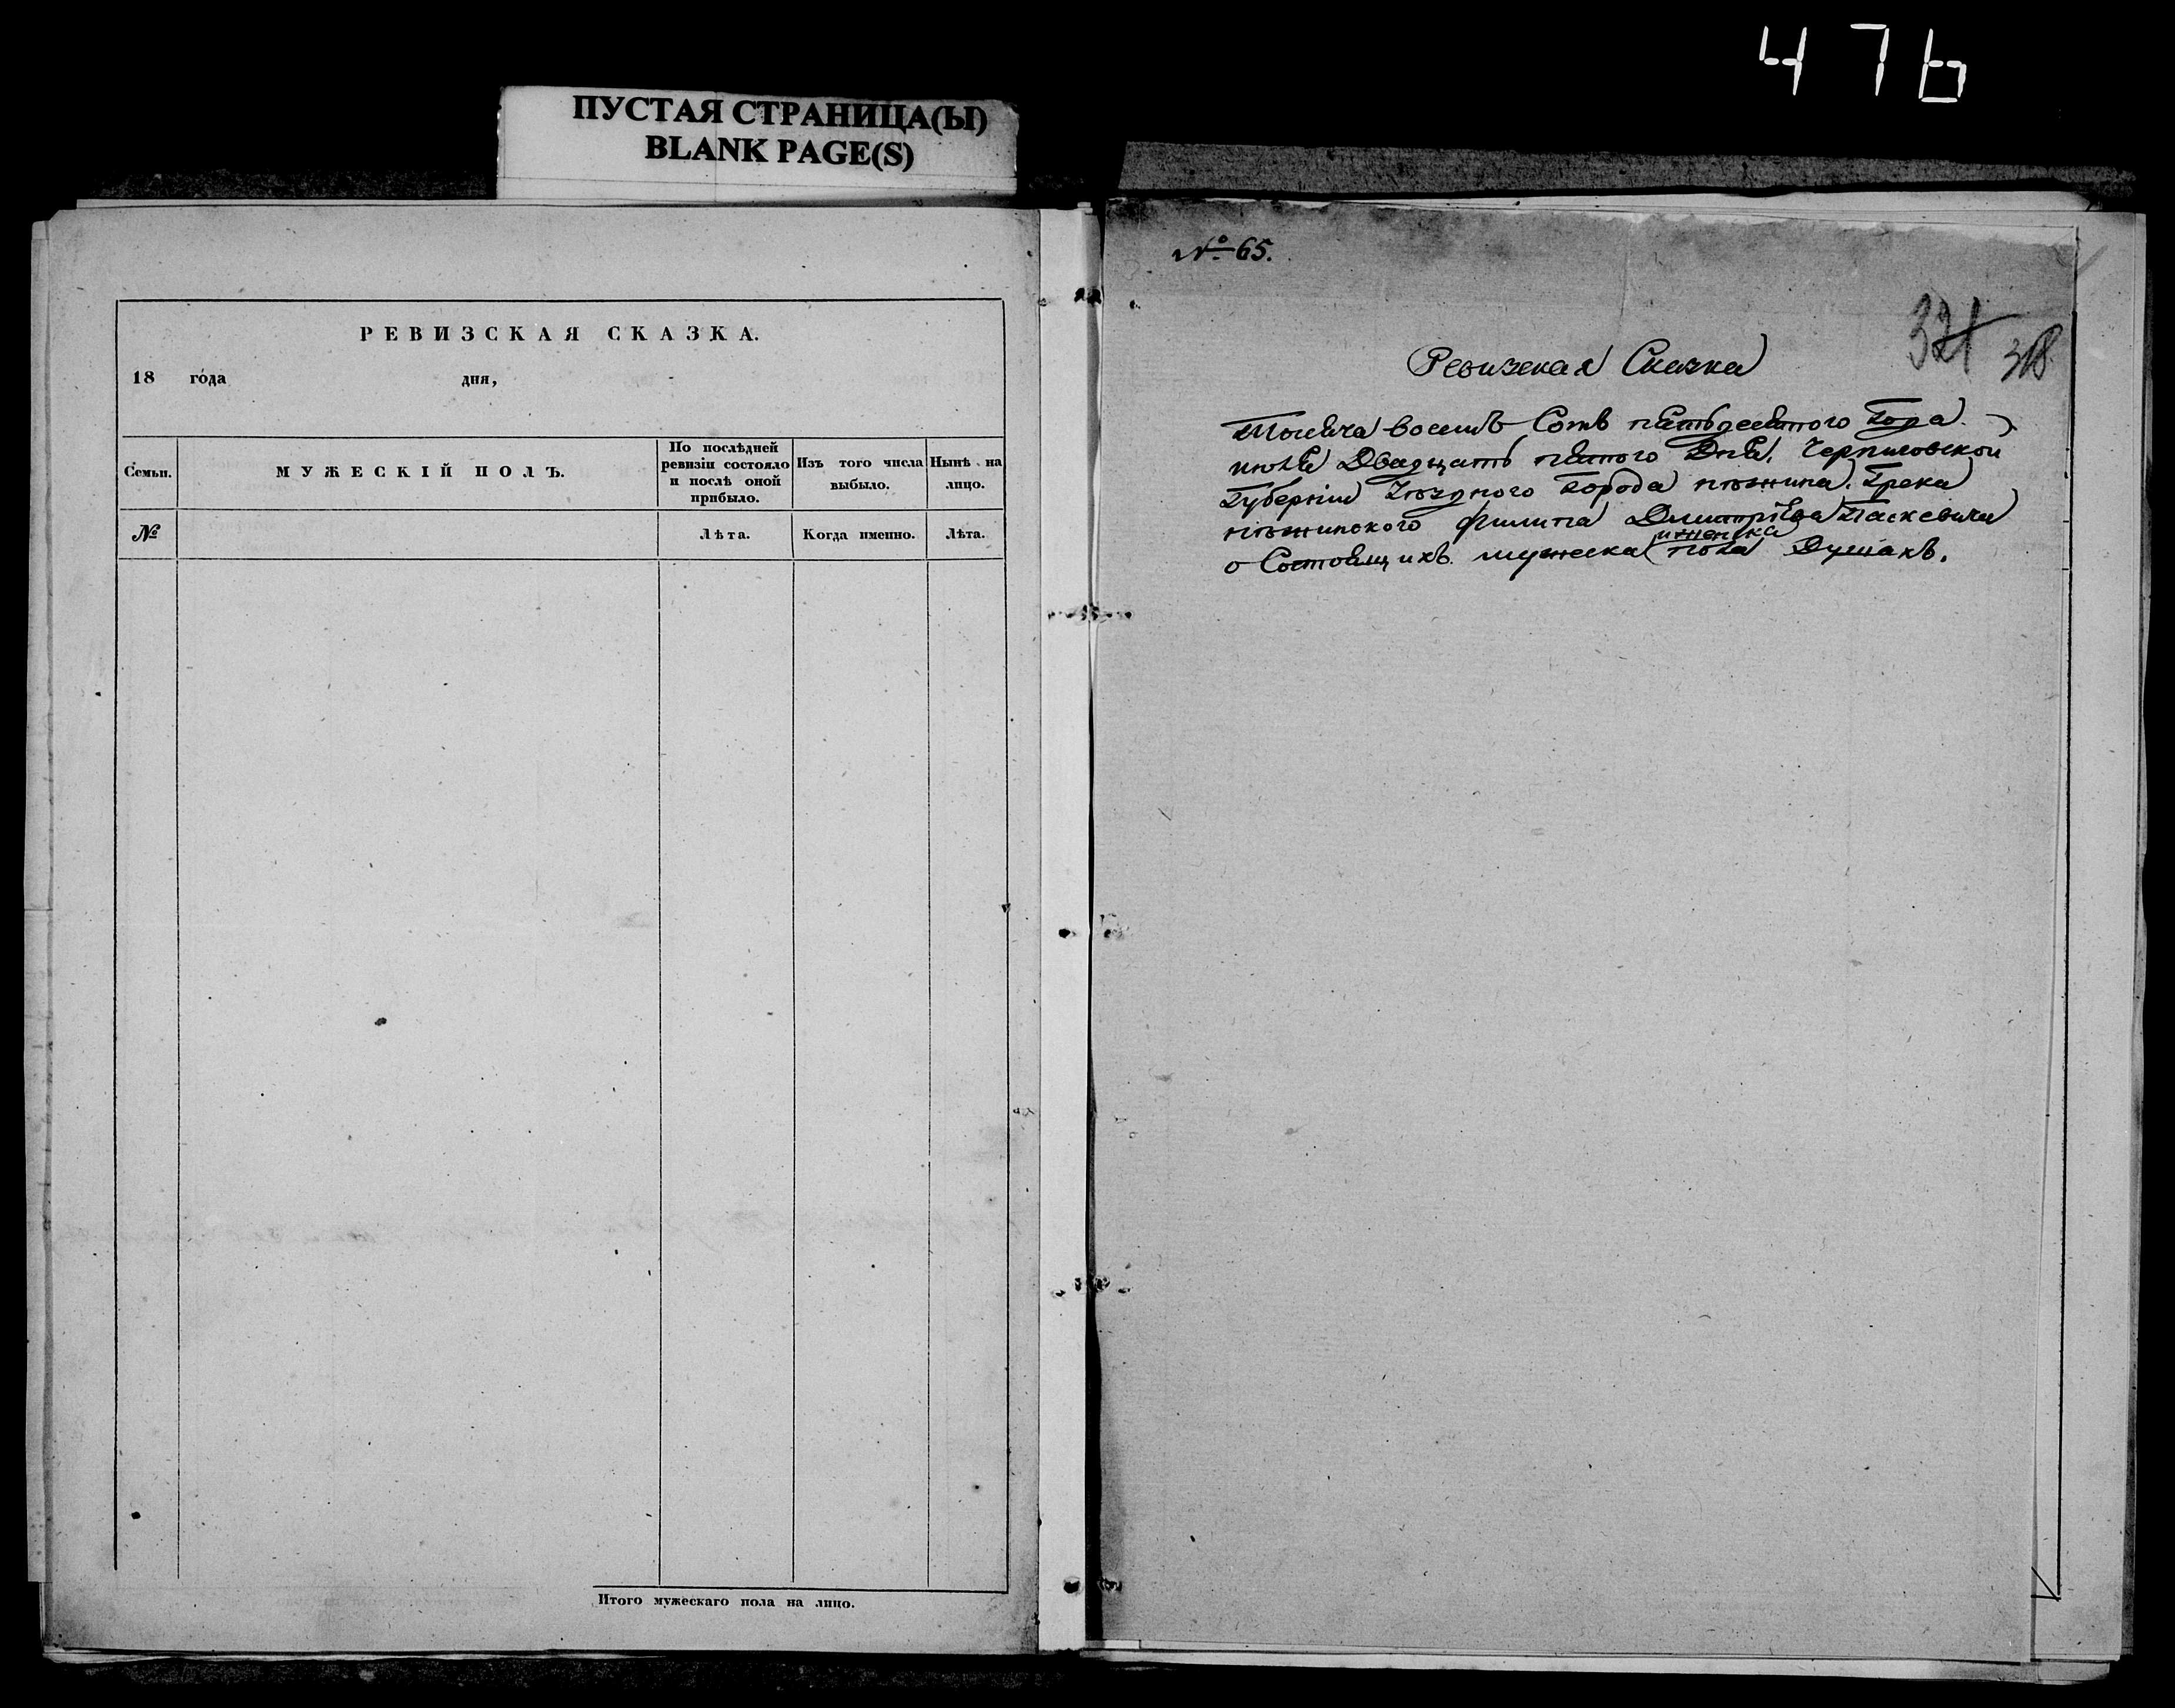 476
ПУСТАЯ СТРАНИЦА(Ы)
BLANK PAGE(S)
РЕВИЗСКАЯ СКАЗКА.
18 года дня,
Семьи.
МУЖЕСКІЙ ПОЛЪ.
По послѣдней ревизіи состояло и послѣ оной прибыло.
Изъ того числа выбыло.
Нынѣ на лицо.
№
Лѣта.
Когда именно.
Лѣта.
Итого мужескаго пола на лицо.
№ 65.
321
318
Ревизская Сказка
Тысяча восемь Сотъ пятьдесятого Года
июля Двадцать пятого Дня. Черниговской
Губерніи Уезднаго Города нѣжина. Грека
нѣжинского филипа Дмитріева Паскевича
и женска
о Состоящихъ мужеска пола Душахъ.